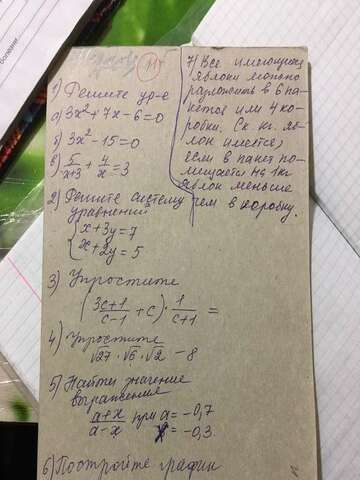 1) Решите ур-е
а) 3x²+7x-6=0
б) 3x²-15=0
в) 5/x+3 + 4/x = 3
2) Решите систему
уравнений
{ x+3y=7
x+2y=5
3) Упростите
(3c+1/c-1 + c) · 1/c+1 =
4) Упростите
√27 · √6 · √2 - 8
5) Найти значение
выражения
a+x/a-x при a= -0,7
x= -0,3.
6) Постройте график
7) Все имеющиеся
яблоки можно
разложить в 6 па-
кетов или 4 ко-
робки. Ск. кг. яб-
лок имеется,
если в пакет по-
мещается на 1кг
яблок меньше
чем в коробку.